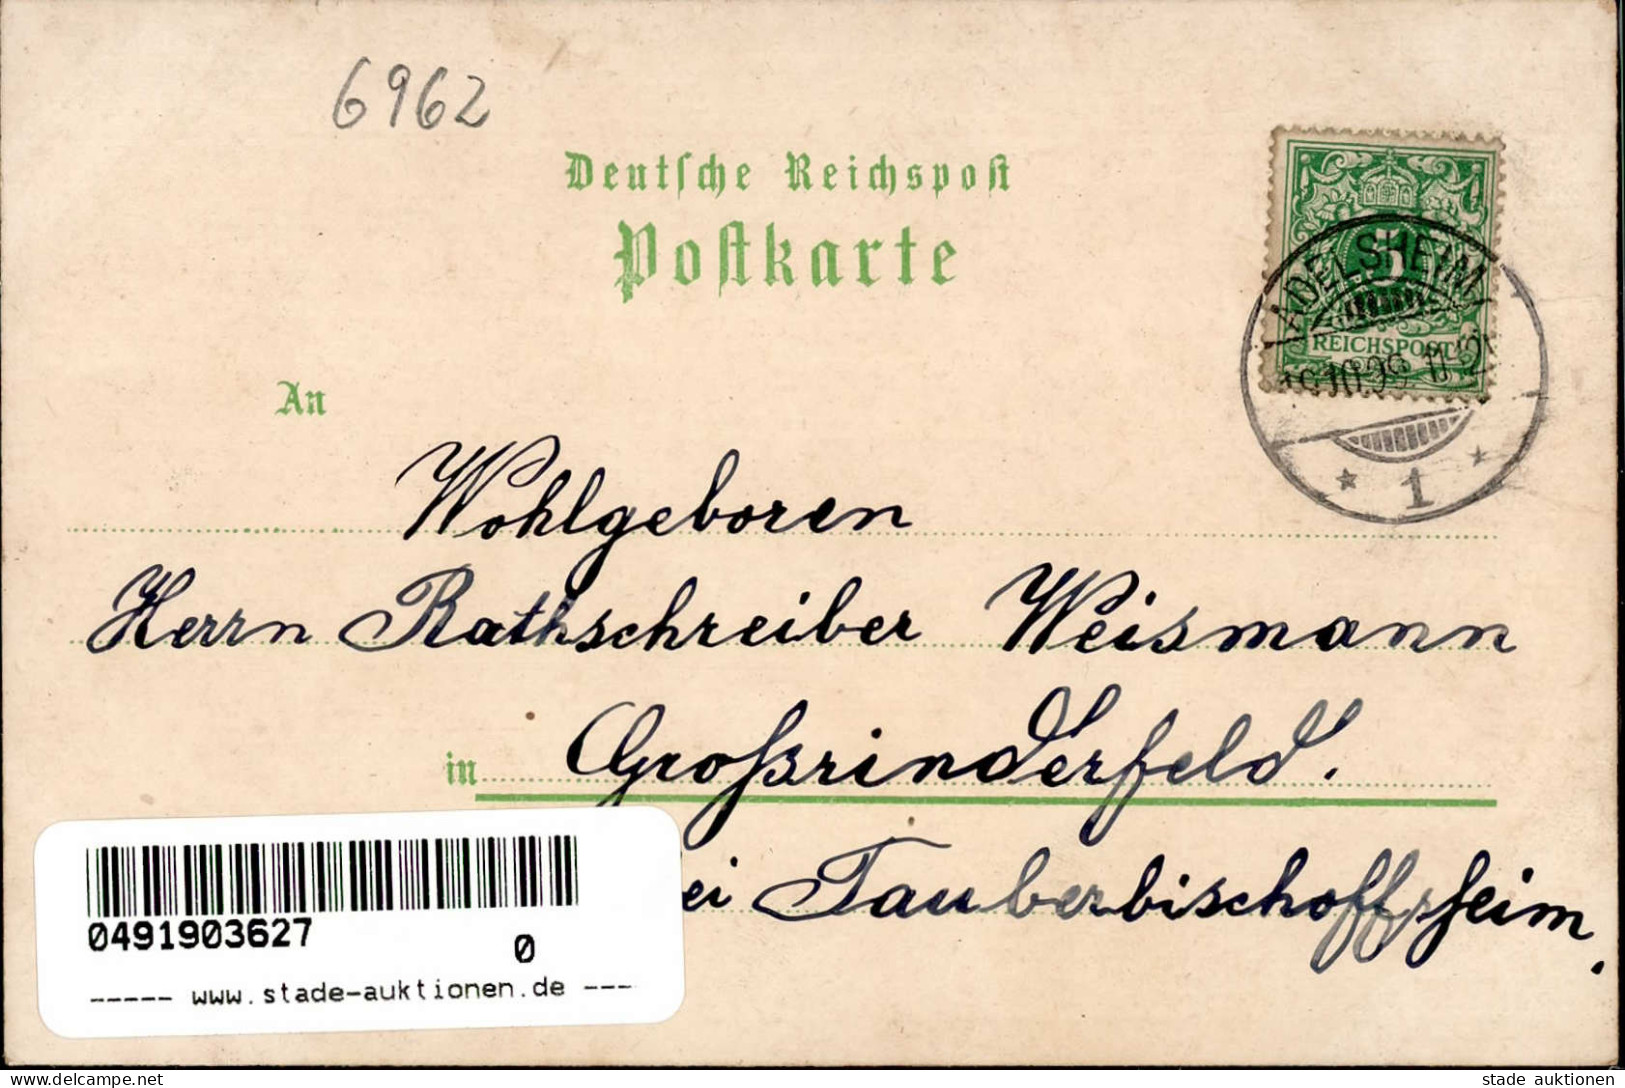 6962
Deutsche Reichspost
Postkarte
ADELSHEIM
5
REICHSPOST
10.99 11-12
* 1 *
An
Wohlgeboren
Herrn Rathschreiber Weismann
in Großrinderfeld.
ei Tauberbischoffsheim.
0491903627
0
----- www.stade-auktionen.de ---
www.delcampe.net
stade auktionen